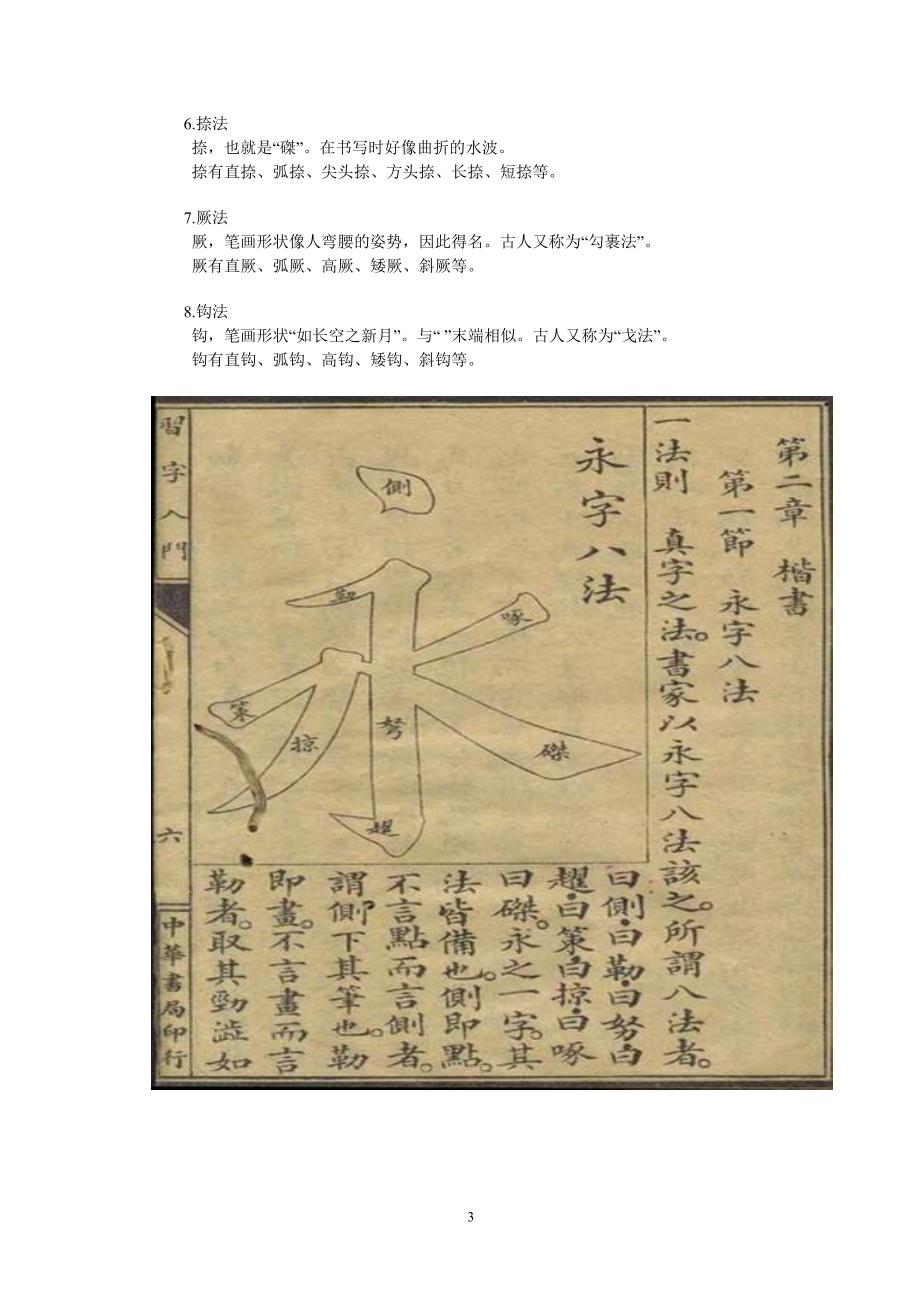 6.捺法
捺，也就是“磔”。在书写时好像曲折的水波。
捺有直捺、弧捺、尖头捺、方头捺、长捺、短捺等。
7.厥法
厥，笔画形状像人弯腰的姿势，因此得名。古人又称为“勾裹法”。
厥有直厥、弧厥、高厥、矮厥、斜厥等。
8.钩法
钩，笔画形状“如长空之新月”。与“ ”末端相似。古人又称为“戈法”。
钩有直钩、弧钩、高钩、矮钩、斜钩等。
第二章 楷書
第一節 永字八法
一法則 真字之法。書家以永字八法該之。所謂八法者。
永字八法
側
勒
啄
策
掠
努
磔
趯
曰側。曰勒。曰努。曰
趯。曰策。曰掠。曰啄
曰磔。永之一字。其
法皆備也。側即點。
不言點而言側者。
謂側下其筆也。勒
即畫。不言畫而言
勒者。取其勁澁如
習字入門
六
中華書局印行
3